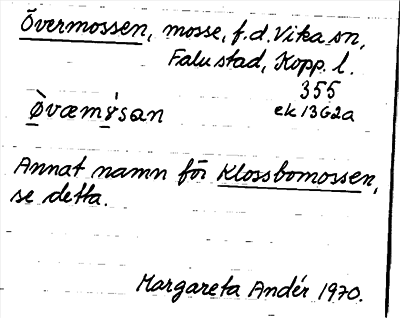 Övermossen, mosse, f.d. Vika sn,
Falu stad, Kopp. l.
355
Øvæmỿsan ek 13G2a
Annat namn för Klossbomossen,
se detta.
Margareta Andér 1970.